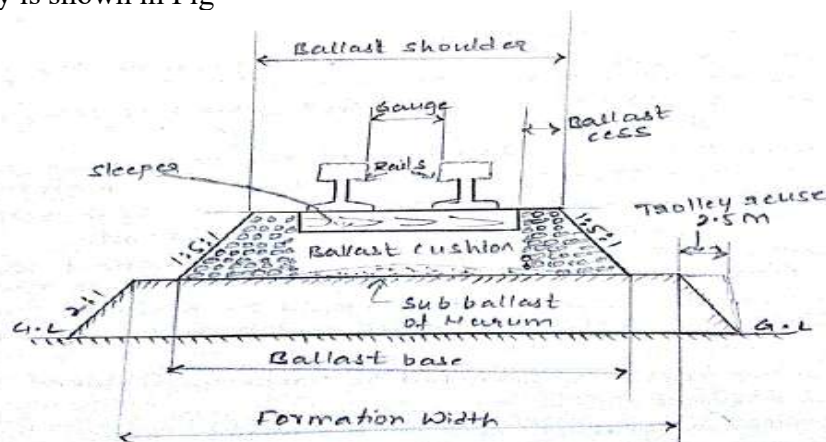 y is shown in Fig
Ballast shoulder
Gauge
Ballast
cess
Sleeper
Rails
Trolley
2.5M
1:5:1
Ballast cushion
1:5:1
2:1
Sub ballast
of Murum
G.L
G.L
Ballast base
Formation Width